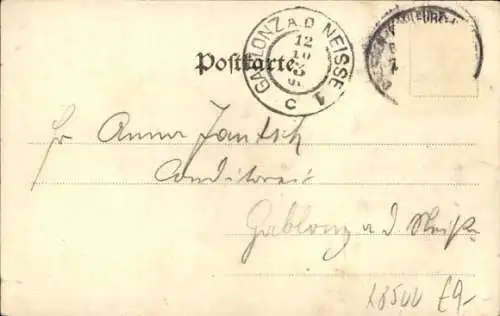 Postkarte
GABLONZ A.D. NEISSE 1
12
10
C
Fr Anna Jantsch
Conditorei
Gablonz a d. Neiße
18500 £9-